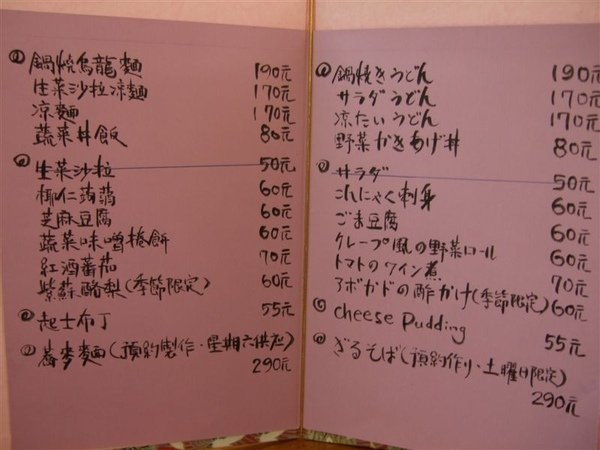 鍋燒烏龍麵 190元
生菜沙拉凉麵 170元
凉麵 170元
蔬菜丼飯 80元
生菜沙拉 50元
椰仁蒟蒻 60元
芝麻豆腐 60元
蔬菜味噌捲餅 60元
紅酒蕃茄 70元
紫蘇酪梨(季節限定) 60元
起士布丁 55元
蕎麥麵(預約製作・星期六供应)
290元
鍋焼きうどん 190元
サラダうどん 170元
凉たいうどん 170元
野菜かきあげ丼 80元
サラダ 50元
こんにゃく刺身 60元
ごま豆腐 60元
クレープ風の野菜ロール 60元
トマトのワイン煮 70元
アボガドの酢かけ(季節限定) 60元
cheese Pudding 55元
ざるそば(預約作り・土曜日限定)
290元